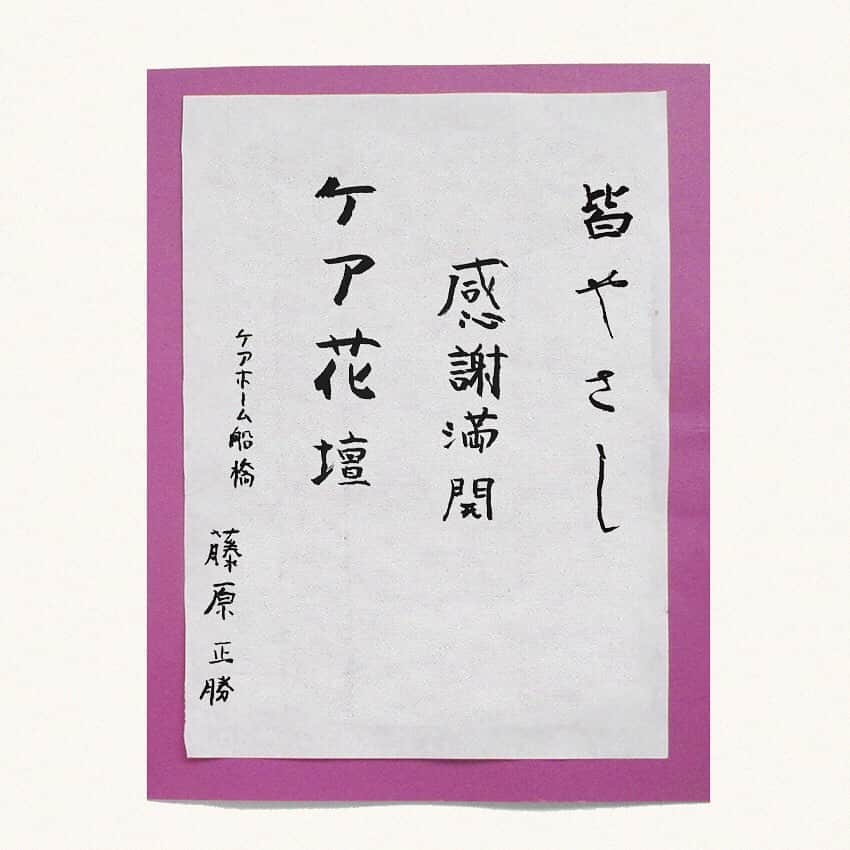 皆やさし
感謝満開
ケア花壇
ケアホーム船橋
藤原正勝